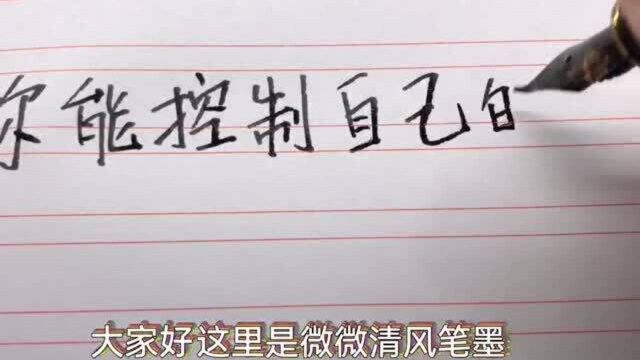 你能控制自己的
大家好这里是微微清风笔墨